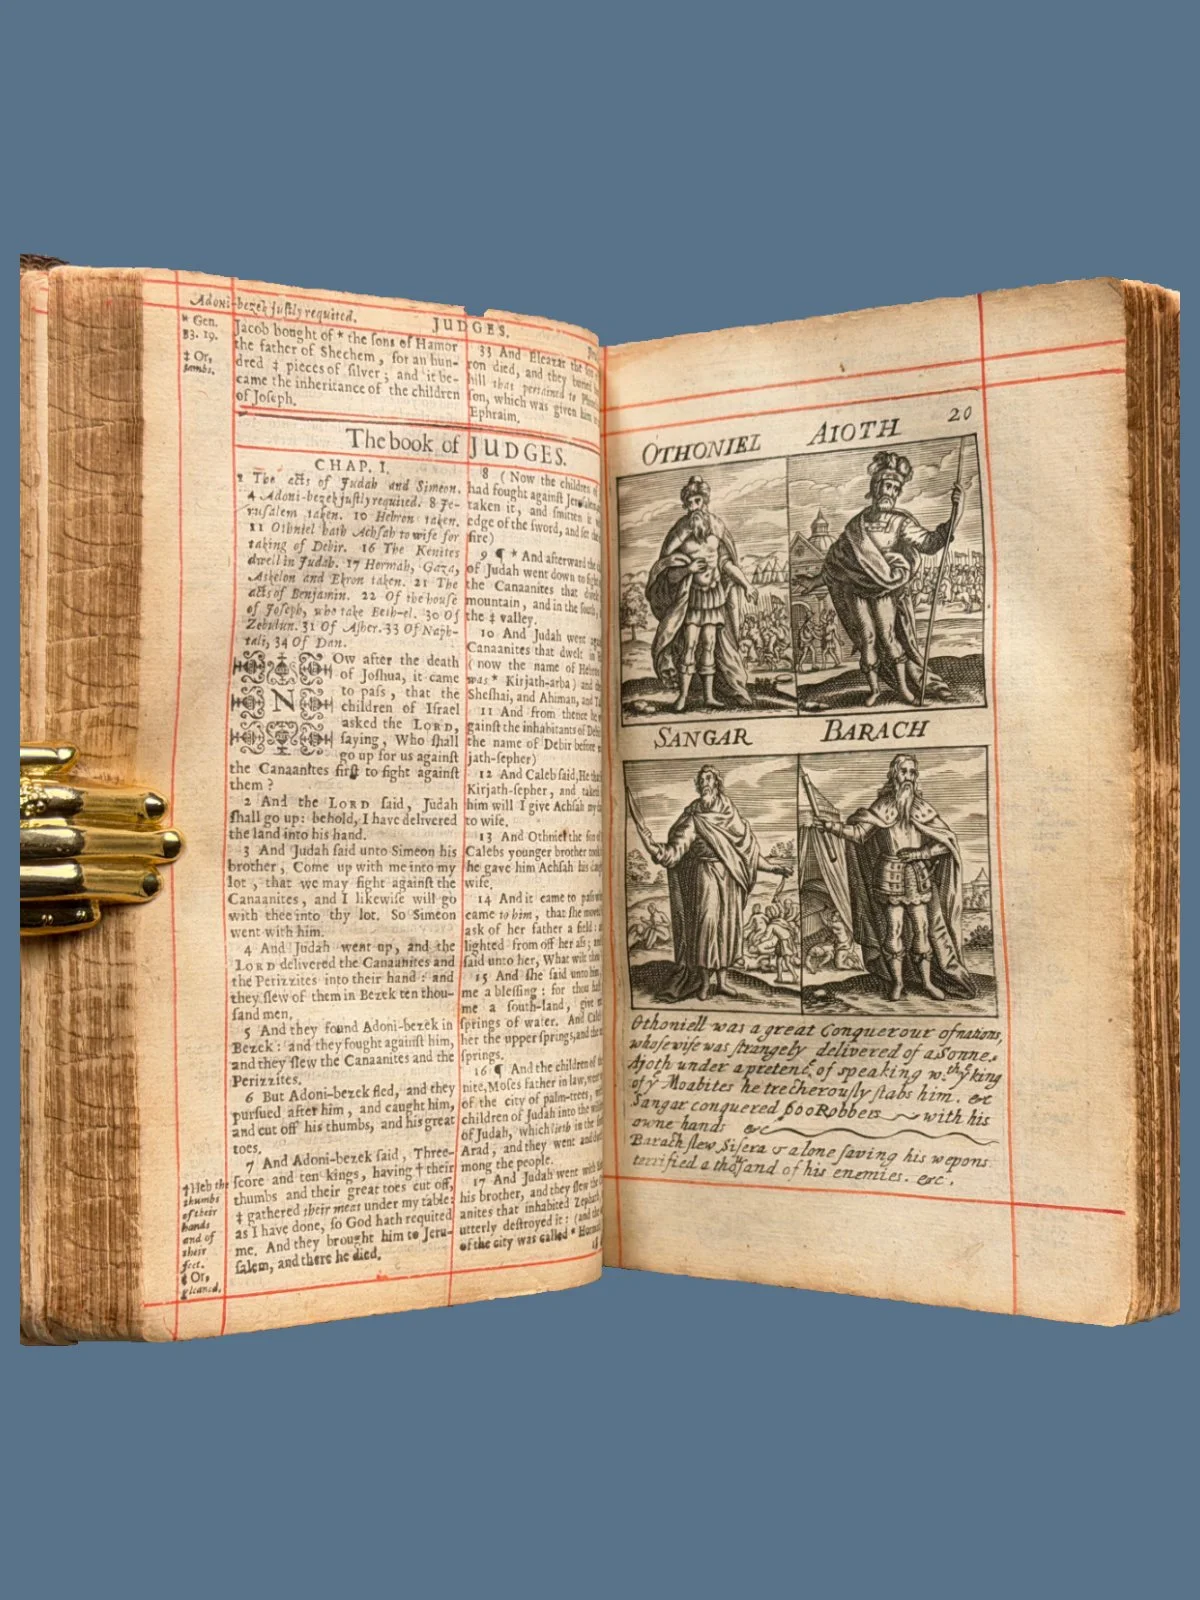 Adoni-bezek justly requited.
JUDGES.
* Gen.
33. 19.
‡ Or,
lambs.
Jacob bought of * the sons of Hamor
the father of Shechem, for an hun-
dred ‡ pieces of silver; and it be-
came the inheritance of the children
of Joseph.
33 And Eleazar the son
ron died, and they buried
hill that pertained to
son, which was given him
Ephraim.
The book of JUDGES.
CHAP. I.
1 The acts of Judah and Simeon.
4 Adoni-bezek justly requited. 8 Je-
rusalem taken. 10 Hebron taken.
11 Othniel hath Achsah to wife for
taking of Debir. 16 The Kenites
dwell in Judah. 17 Hormah, Gaza,
Askelon and Ekron taken. 21 The
acts of Benjamin. 22 Of the house
of Joseph, who take Beth-el. 30 Of
Zebulun. 31 Of Asher. 33 Of Naph-
tali, 34 Of Dan.
NOw after the death
of Joshua, it came
to pass, that the
children of Israel
asked the LORD,
saying, Who shall
go up for us against
the Canaanites first to fight against
them?
2 And the LORD said, Judah
shall go up: behold, I have delivered
the land into his hand.
3 And Judah said unto Simeon his
brother, Come up with me into my
lot, that we may fight against the
Canaanites, and I likewise will go
with thee into thy lot. So Simeon
went with him.
4 And Judah went up, and the
LORD delivered the Canaanites and
the Perizzites into their hand: and
they slew of them in Bezek ten thou-
sand men.
5 And they found Adoni-bezek in
Bezek: and they fought against him,
and they slew the Canaanites and the
Perizzites.
6 But Adoni-bezek fled, and they
pursued after him, and caught him,
and cut off his thumbs, and his great
toes.
7 And Adoni-bezek said, Three-
score and ten kings, having † their
thumbs and their great toes cut off,
‡ gathered their meat under my table:
as I have done, so God hath requited
me. And they brought him to Jeru-
salem, and there he died.
† Heb. the
thumbs
of their
hands
and of
their
feet.
‡ Or,
gleaned.
8 (Now the children of
had fought against Jerusalem,
taken it, and smitten it
edge of the sword, and set the
fire)
9 ¶ * And afterward the
of Judah went down to fight
the Canaanites that
mountain, and in the south,
the ‡ valley.
10 And Judah went
Canaanites that dwelt in
(now the name of Hebron
was * Kirjath-arba) and
Sheshai, and Ahiman, and
11 And from thence he
gainst the inhabitants of Debir
the name of Debir before
jath-sepher)
12 And Caleb said, He that
Kirjath-sepher, and taketh
him will I give Achsah my
to wife.
13 And Othniel the son of
Calebs younger brother took
he gave him Achsah his
wife.
14 And it came to pass
came to him, that she moved
ask of her father a field:
lighted from off her ass;
said unto her, What wilt
15 And she said unto him,
me a blessing: for thou
me a south-land, give
springs of water. And Caleb
her the upper springs, and the
springs.
16 ¶ And the children of the
nite, Moses father in law,
of the city of palm-trees,
children of Judah into the
of Judah, which lieth in the
Arad, and they went and
mong the people.
17 And Judah went with
his brother, and they slew the
anites that inhabited Zephath,
utterly destroyed it: (and the
of the city was called * Hormah
20
OTHONIEL AIOTH
SANGAR BARACH
Othoniell was a great Conquerour of nations,
whose wife was strangely delivered of a Sonne.
Ajoth under a pretence of speaking wth ye king
of ye Moabites he trecherously stabs him. &c
Sangar conquered 600 Robbers with his
owne hands &c
Barach slew Sisera & alone saving his wepons
terrified a thousand of his enemies. &c.